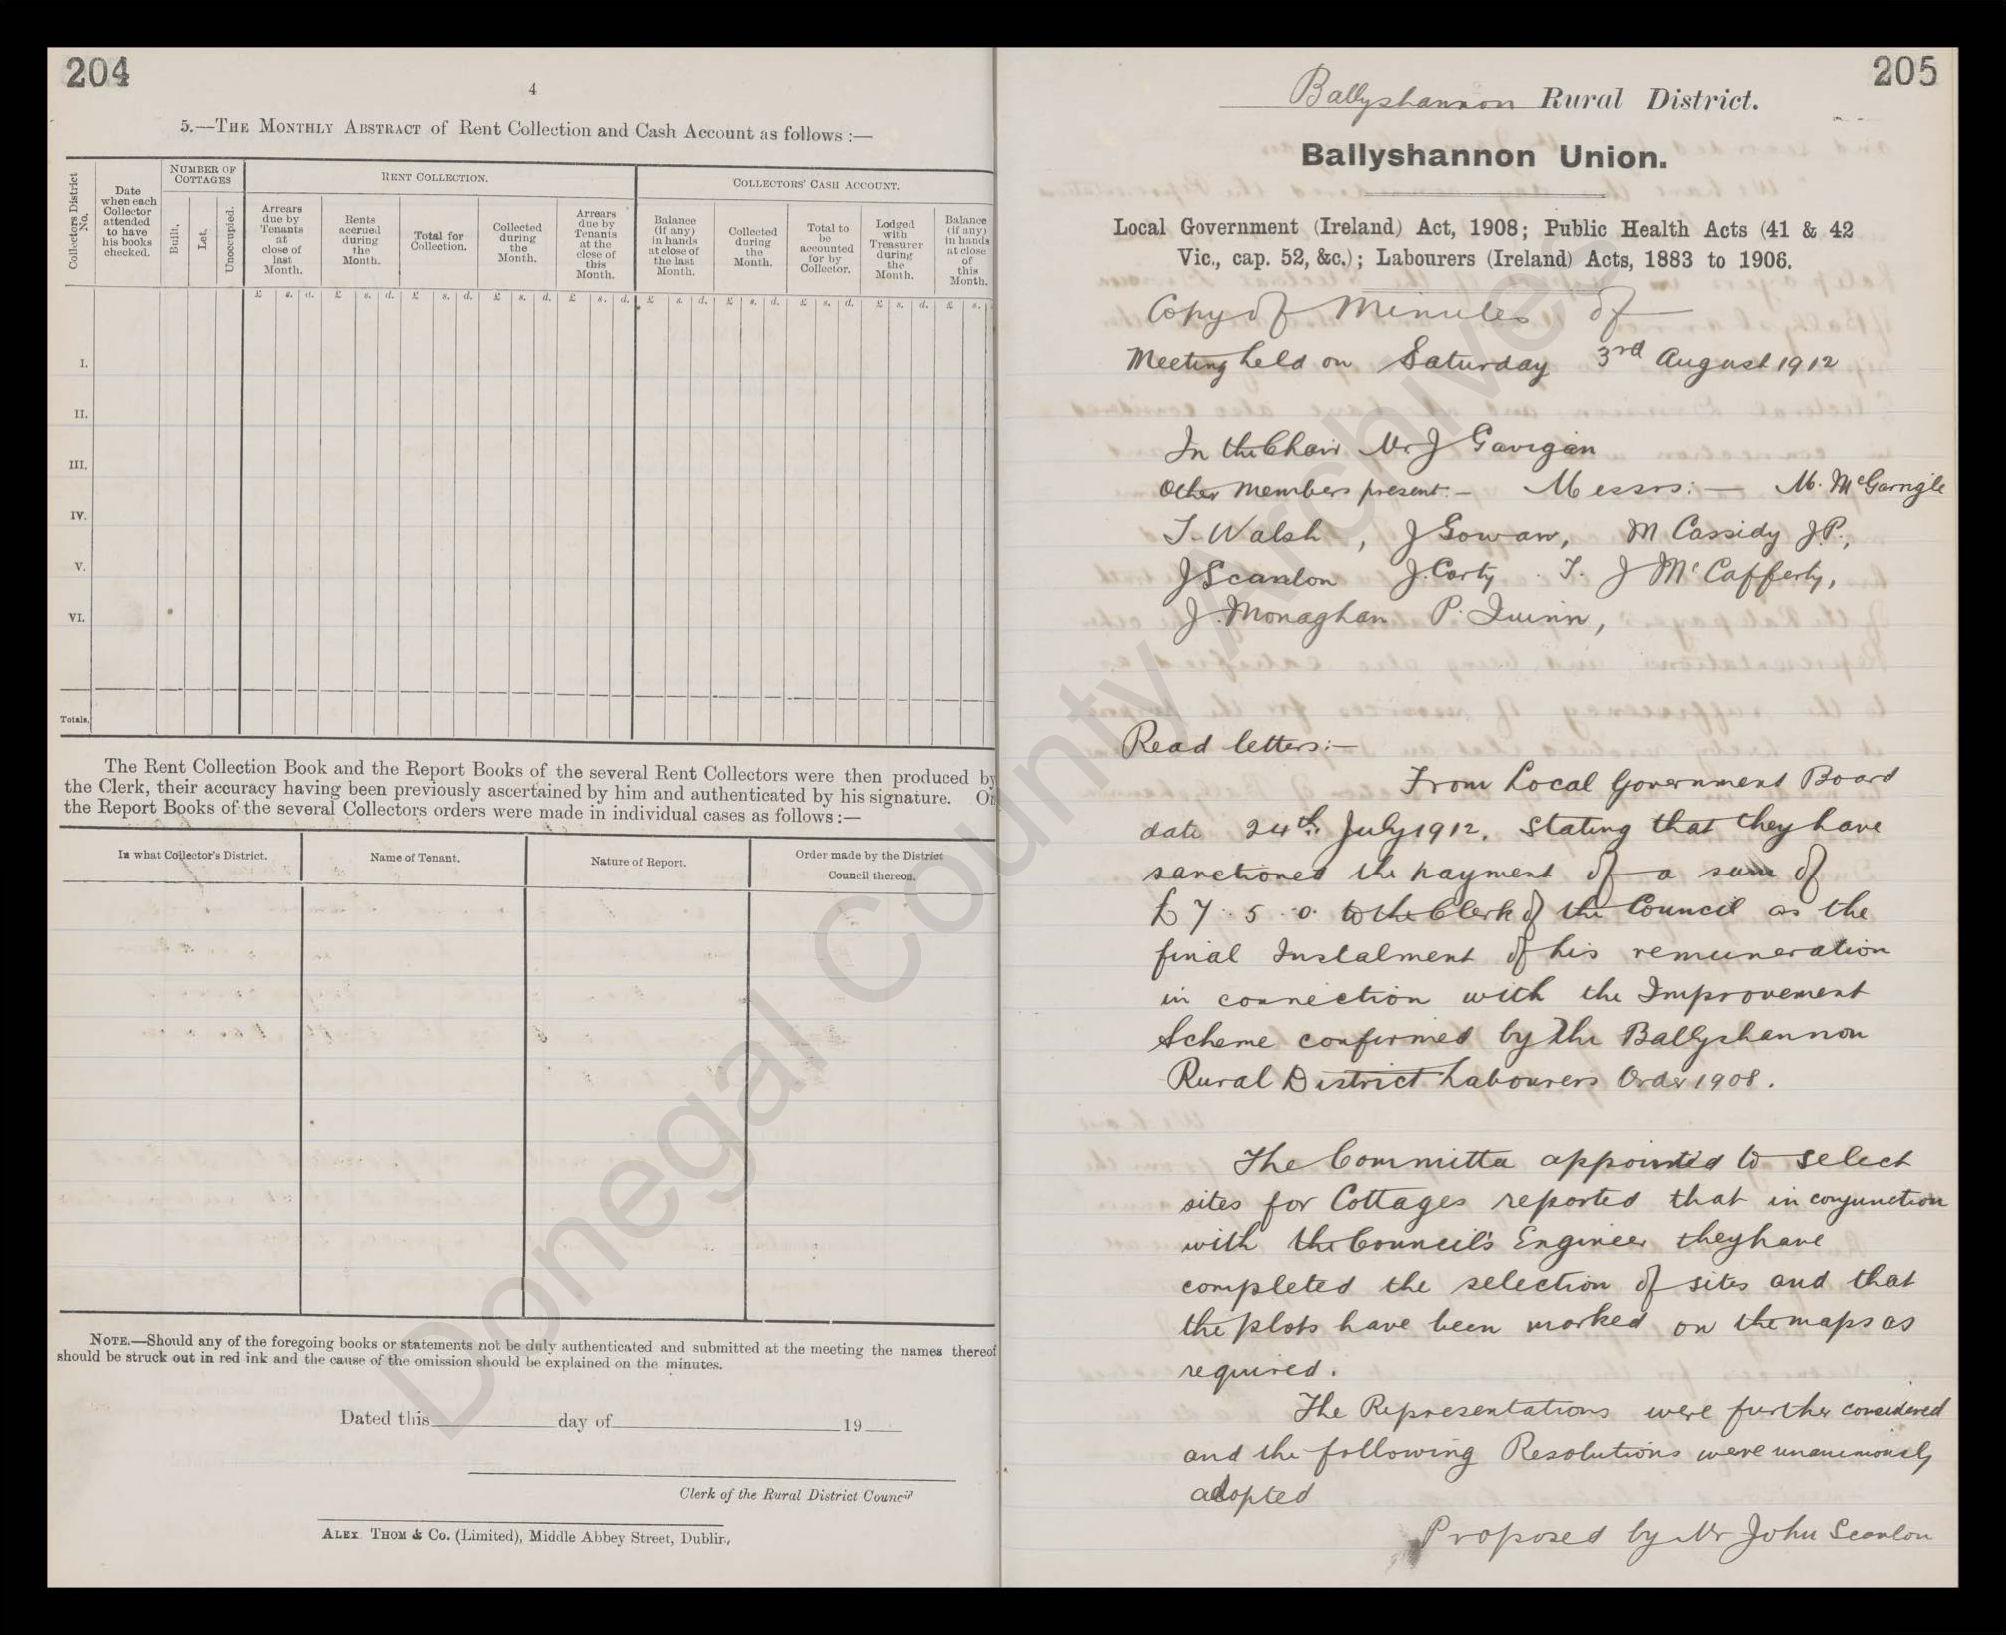 204
4
5.—The Monthly Abstract of Rent Collection and Cash Account as follows :—
Collectors District No.
Date when each Collector attended to have his books checked.
NUMBER OF COTTAGES
Built.
Let.
Unoccupied.
RENT COLLECTION.
Arrears due by Tenants at close of last Month.
Rents accrued during the Month.
Total for Collection.
Collected during the Month.
Arrears due by Tenants at the close of this Month.
COLLECTORS' CASH ACCOUNT.
Balance (if any) in hands at close of the last Month.
Collected during the Month.
Total to be accounted for by Collector.
Lodged with Treasurer during the Month.
Balance (if any) in hands at close of this Month.
£ s. d. £ s. d. £ s. d. £ s. d. £ s. d. £ s. d. £ s. d. £ s. d. £ s. d. £ s.
I.
II.
III.
IV.
V.
VI.
Totals,
The Rent Collection Book and the Report Books of the several Rent Collectors were then produced by
the Clerk, their accuracy having been previously ascertained by him and authenticated by his signature. On
the Report Books of the several Collectors orders were made in individual cases as follows :—
In what Collector's District.
Name of Tenant.
Nature of Report.
Order made by the District
Council thereon.
NOTE.—Should any of the foregoing books or statements not be duly authenticated and submitted at the meeting the names thereof
should be struck out in red ink and the cause of the omission should be explained on the minutes.
Dated this day of 19
Clerk of the Rural District Council
ALEX. THOM & Co. (Limited), Middle Abbey Street, Dublin,
205
Ballyshannon Rural District.
Ballyshannon Union.
Local Government (Ireland) Act, 1908; Public Health Acts (41 & 42
Vic., cap. 52, &c.); Labourers (Ireland) Acts, 1883 to 1906.
Copy of Minutes of
Meeting held on Saturday 3rd August 1912
In the Chair Mr J Gavigan
Other members present:— Messrs:— M. McGarrigle
T. Walsh, J Gowan, M Cassidy J.P.,
J Scanlon J. Carty T. J McCafferty,
J. Monaghan P. Quinn,
Read letters:—
From Local Government Board
date 24th July 1912. Stating that they have
sanctioned the payment of a sum of
£7. 5. 0. to the Clerk of the Council as the
final Instalment of his remuneration
in connection with the Improvement
Scheme confirmed by the Ballyshannon
Rural District Labourers Order 1908.
The Committee appointed to select
sites for Cottages reported that in conjunction
with the Council's Engineer they have
completed the selection of sites and that
the plots have been marked on the maps as
required.
The Representations were further considered
and the following Resolutions were unanimously
adopted
Proposed by Mr John Scanlon
Donegal County Archives